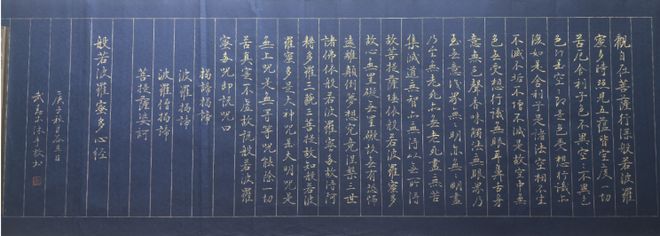 觀自在菩薩行深般若波羅
蜜多時照見五蘊皆空度一切
苦厄舍利子色不異空空不異色
色即是空空即是色受想行識亦
復如是舍利子是諸法空相不生
不滅不垢不淨不增不減是故空中無
色無受想行識無眼耳鼻舌身
意無色聲香味觸法無眼界乃
至無意識界無無明亦無無明盡
乃至無老死亦無老死盡無苦
集滅道無智亦無得以無所得
故菩提薩埵依般若波羅蜜多
故心無罣礙無罣礙故無有恐怖
遠離顛倒夢想究竟涅槃三世
諸佛依般若波羅蜜多故得阿
耨多羅三藐三菩提故知般若波
羅蜜多是大神咒是大明咒是
無上咒是無等等咒能除一切
苦真實不虛故說般若波羅
蜜多咒即說咒曰
揭諦揭諦
波羅揭諦
波羅僧揭諦
菩提薩婆訶
般若波羅蜜多心經
庚子秋月